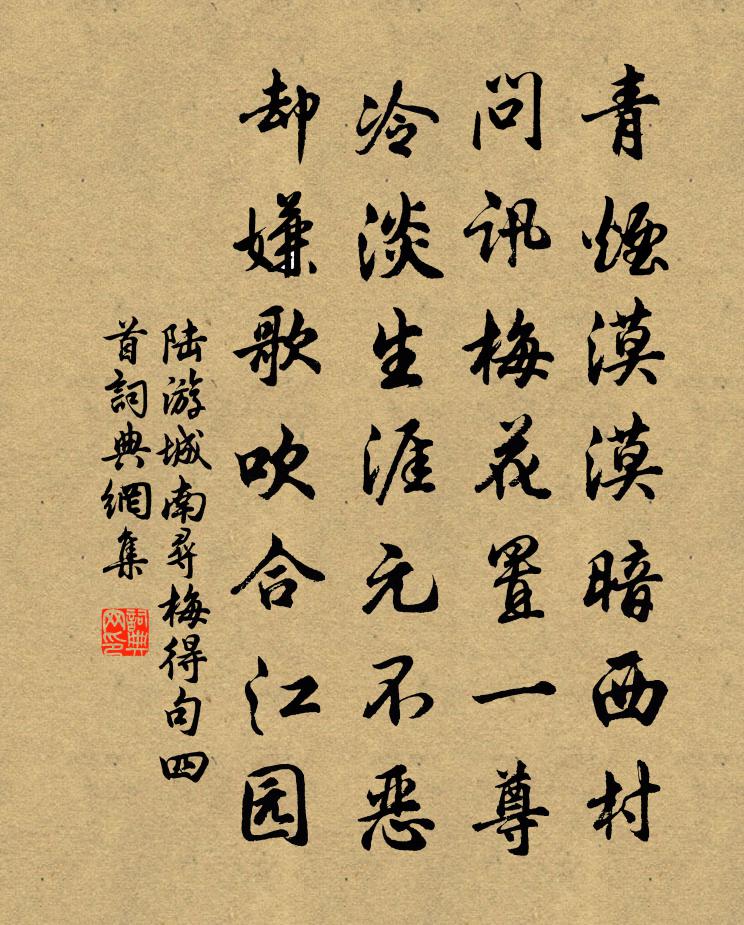 青煙漠漠暗西村
問訊梅花置一尊
冷淡生涯元不惡
却嫌歌吹合江园
陆游城南尋梅得句四
首詞典網集
詞典
网印